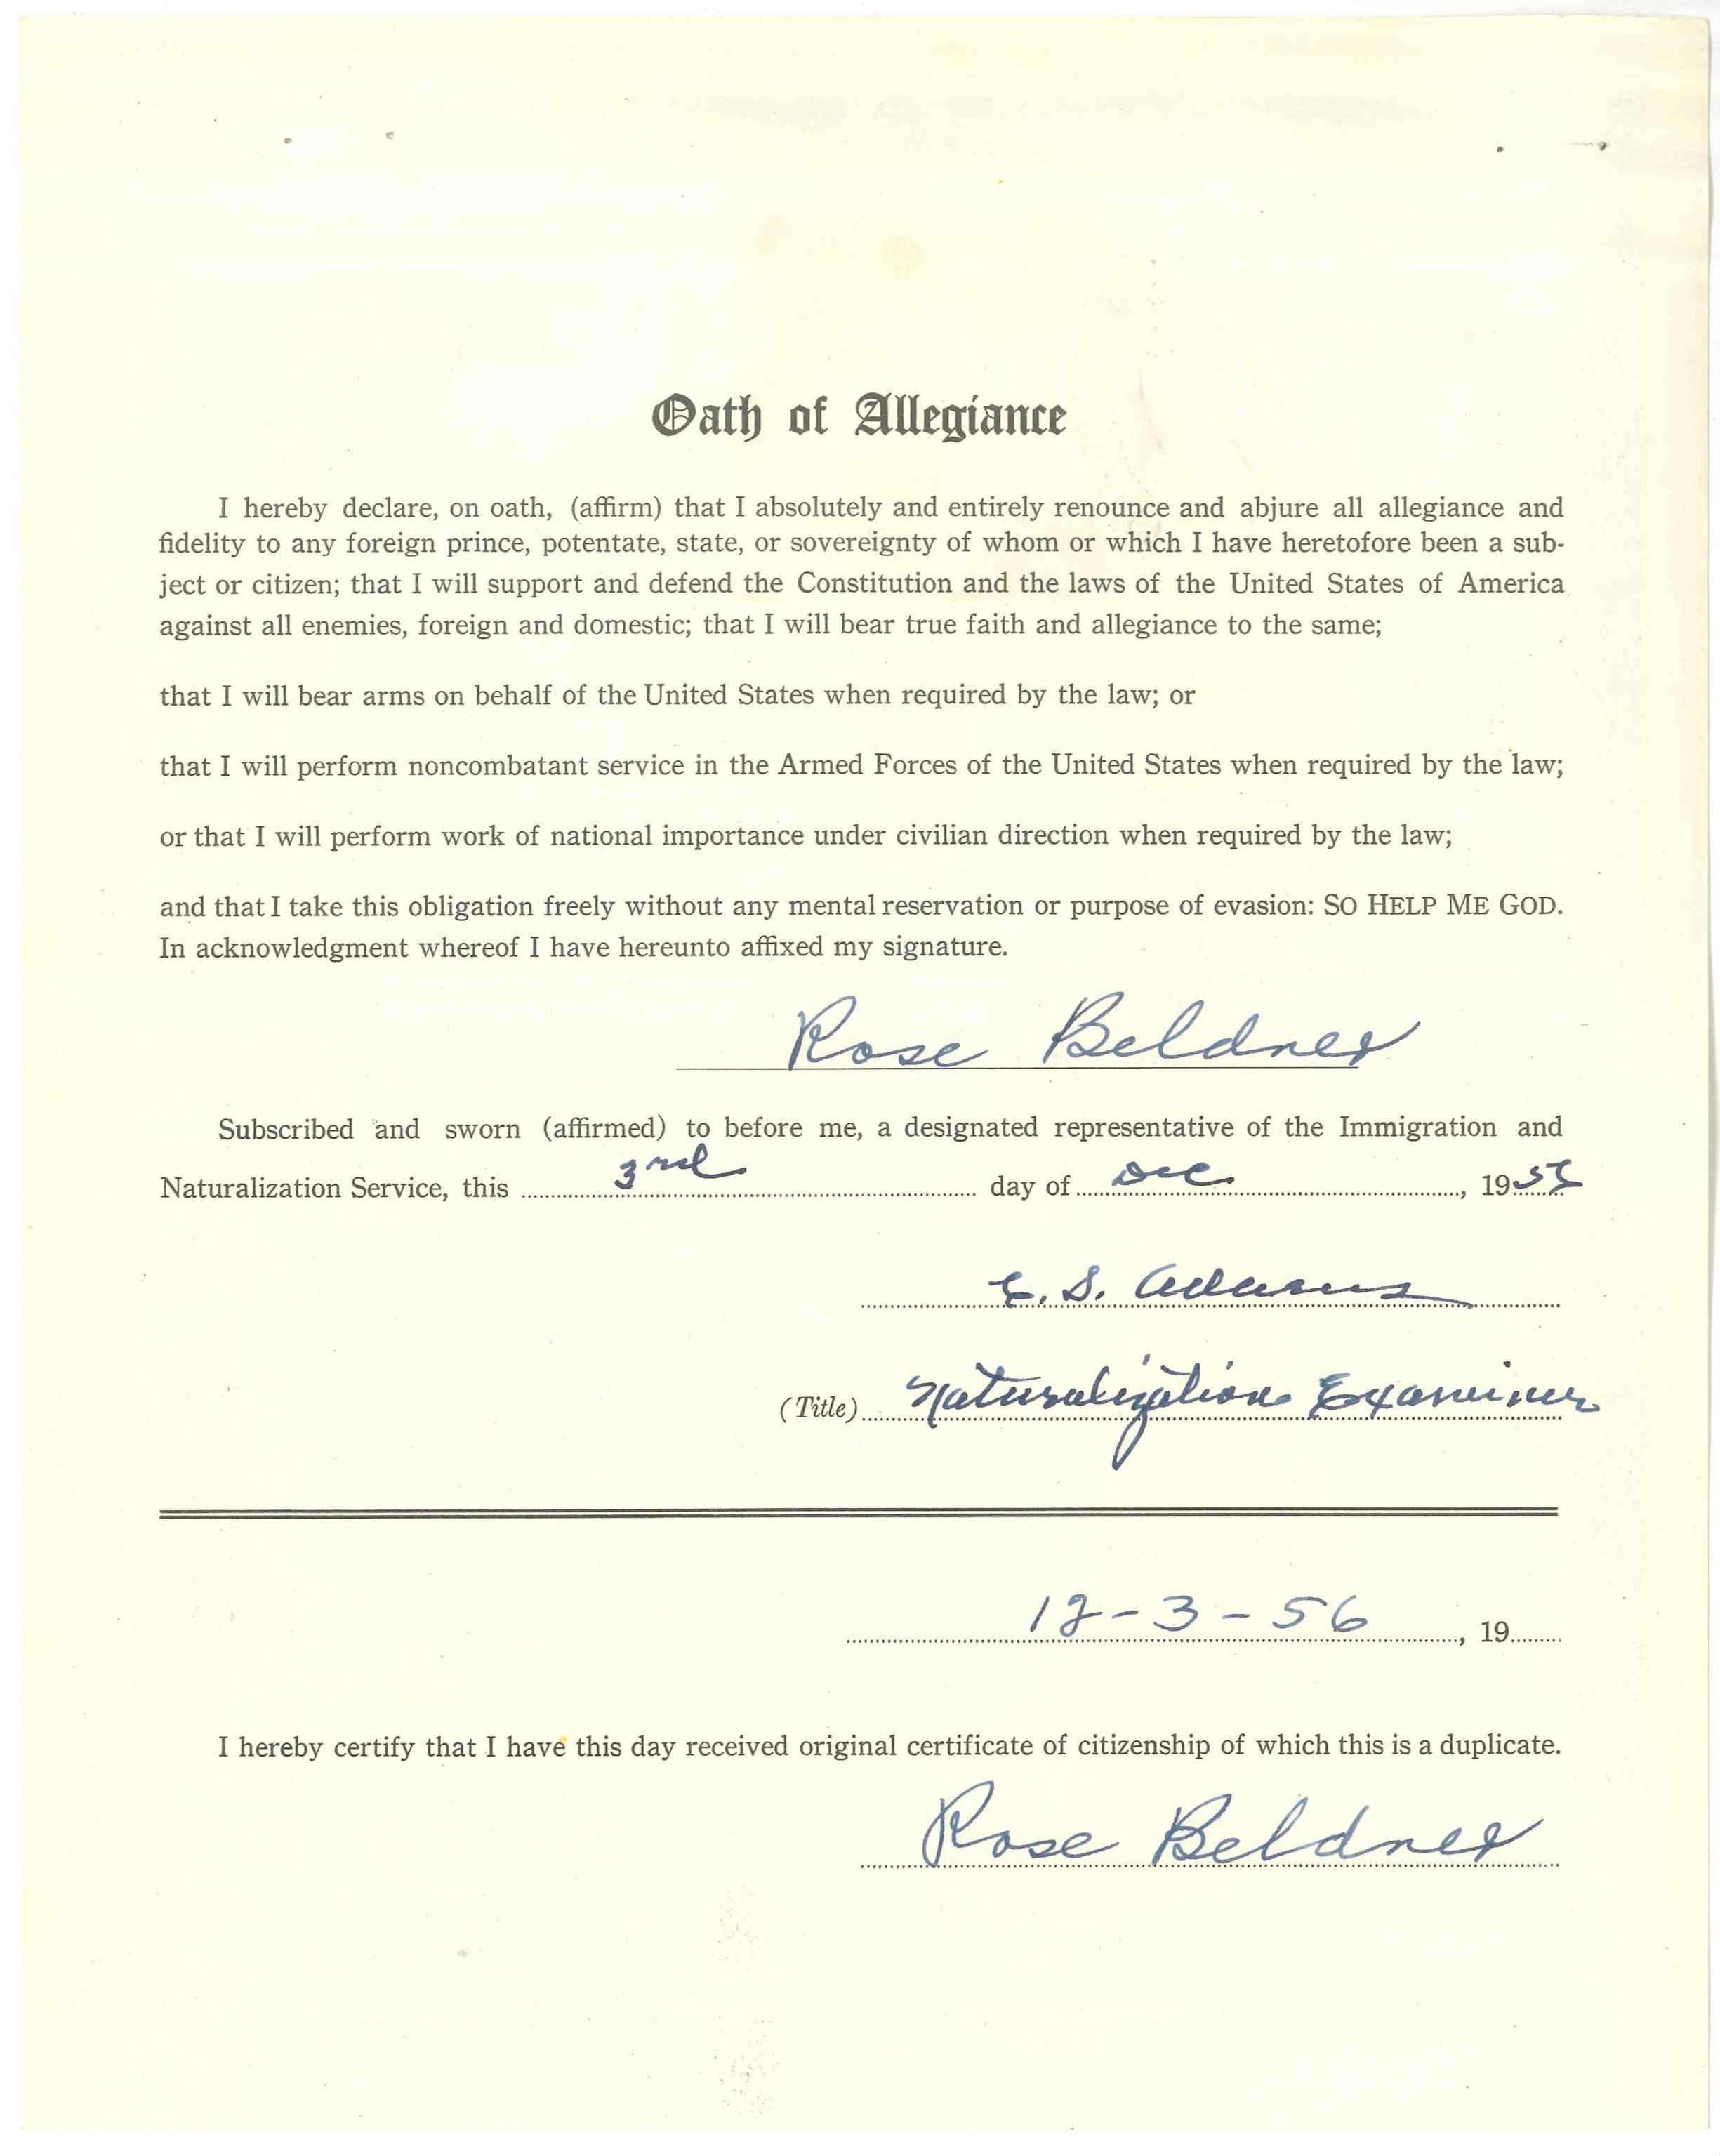 Oath of Allegiance
I hereby declare, on oath, (affirm) that I absolutely and entirely renounce and abjure all allegiance and
fidelity to any foreign prince, potentate, state, or sovereignty of whom or which I have heretofore been a sub-
ject or citizen; that I will support and defend the Constitution and the laws of the United States of America
against all enemies, foreign and domestic; that I will bear true faith and allegiance to the same;
that I will bear arms on behalf of the United States when required by the law; or
that I will perform noncombatant service in the Armed Forces of the United States when required by the law;
or that I will perform work of national importance under civilian direction when required by the law;
and that I take this obligation freely without any mental reservation or purpose of evasion: SO HELP ME GOD.
In acknowledgment whereof I have hereunto affixed my signature.
Rose Beldner
Subscribed and sworn (affirmed) to before me, a designated representative of the Immigration and
Naturalization Service, this 3rd day of Dec, 19
S. Adams
(Title) Naturalization Examiner
12-3-56, 19
I hereby certify that I have this day received original certificate of citizenship of which this is a duplicate.
Rose Beldner